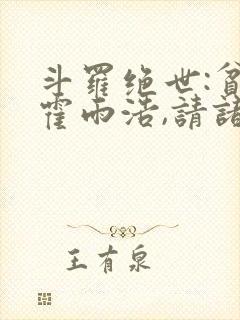 斗羅绝世:貧
霍雨浩,請諸
王有泉